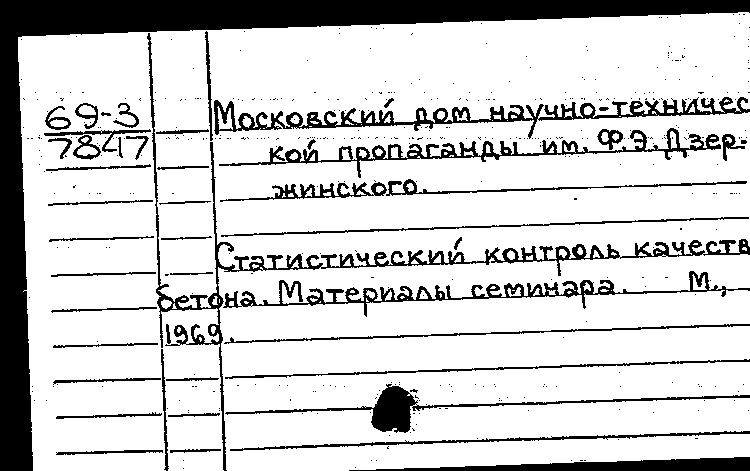 69-3
7847
Московский дом научно-техничес
кой пропаганды им. Ф.Э. Дзер-
жинского.
Статистический контроль качеств
бетона. Материалы семинара. М.,
1969.